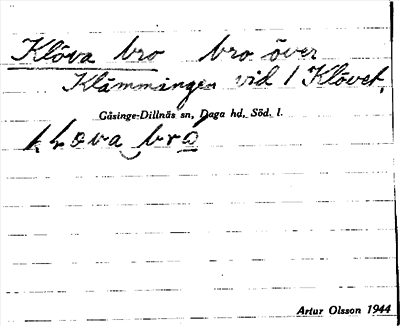 Klöva bro bro över
Klämmingen vid 1 Klövet.
Gåsinge-Dillnäs sn, Daga hd, Söd. l.
bro
Artur Olsson 1944